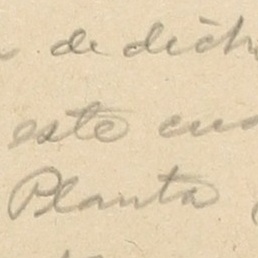 de dich
este cua
Planta